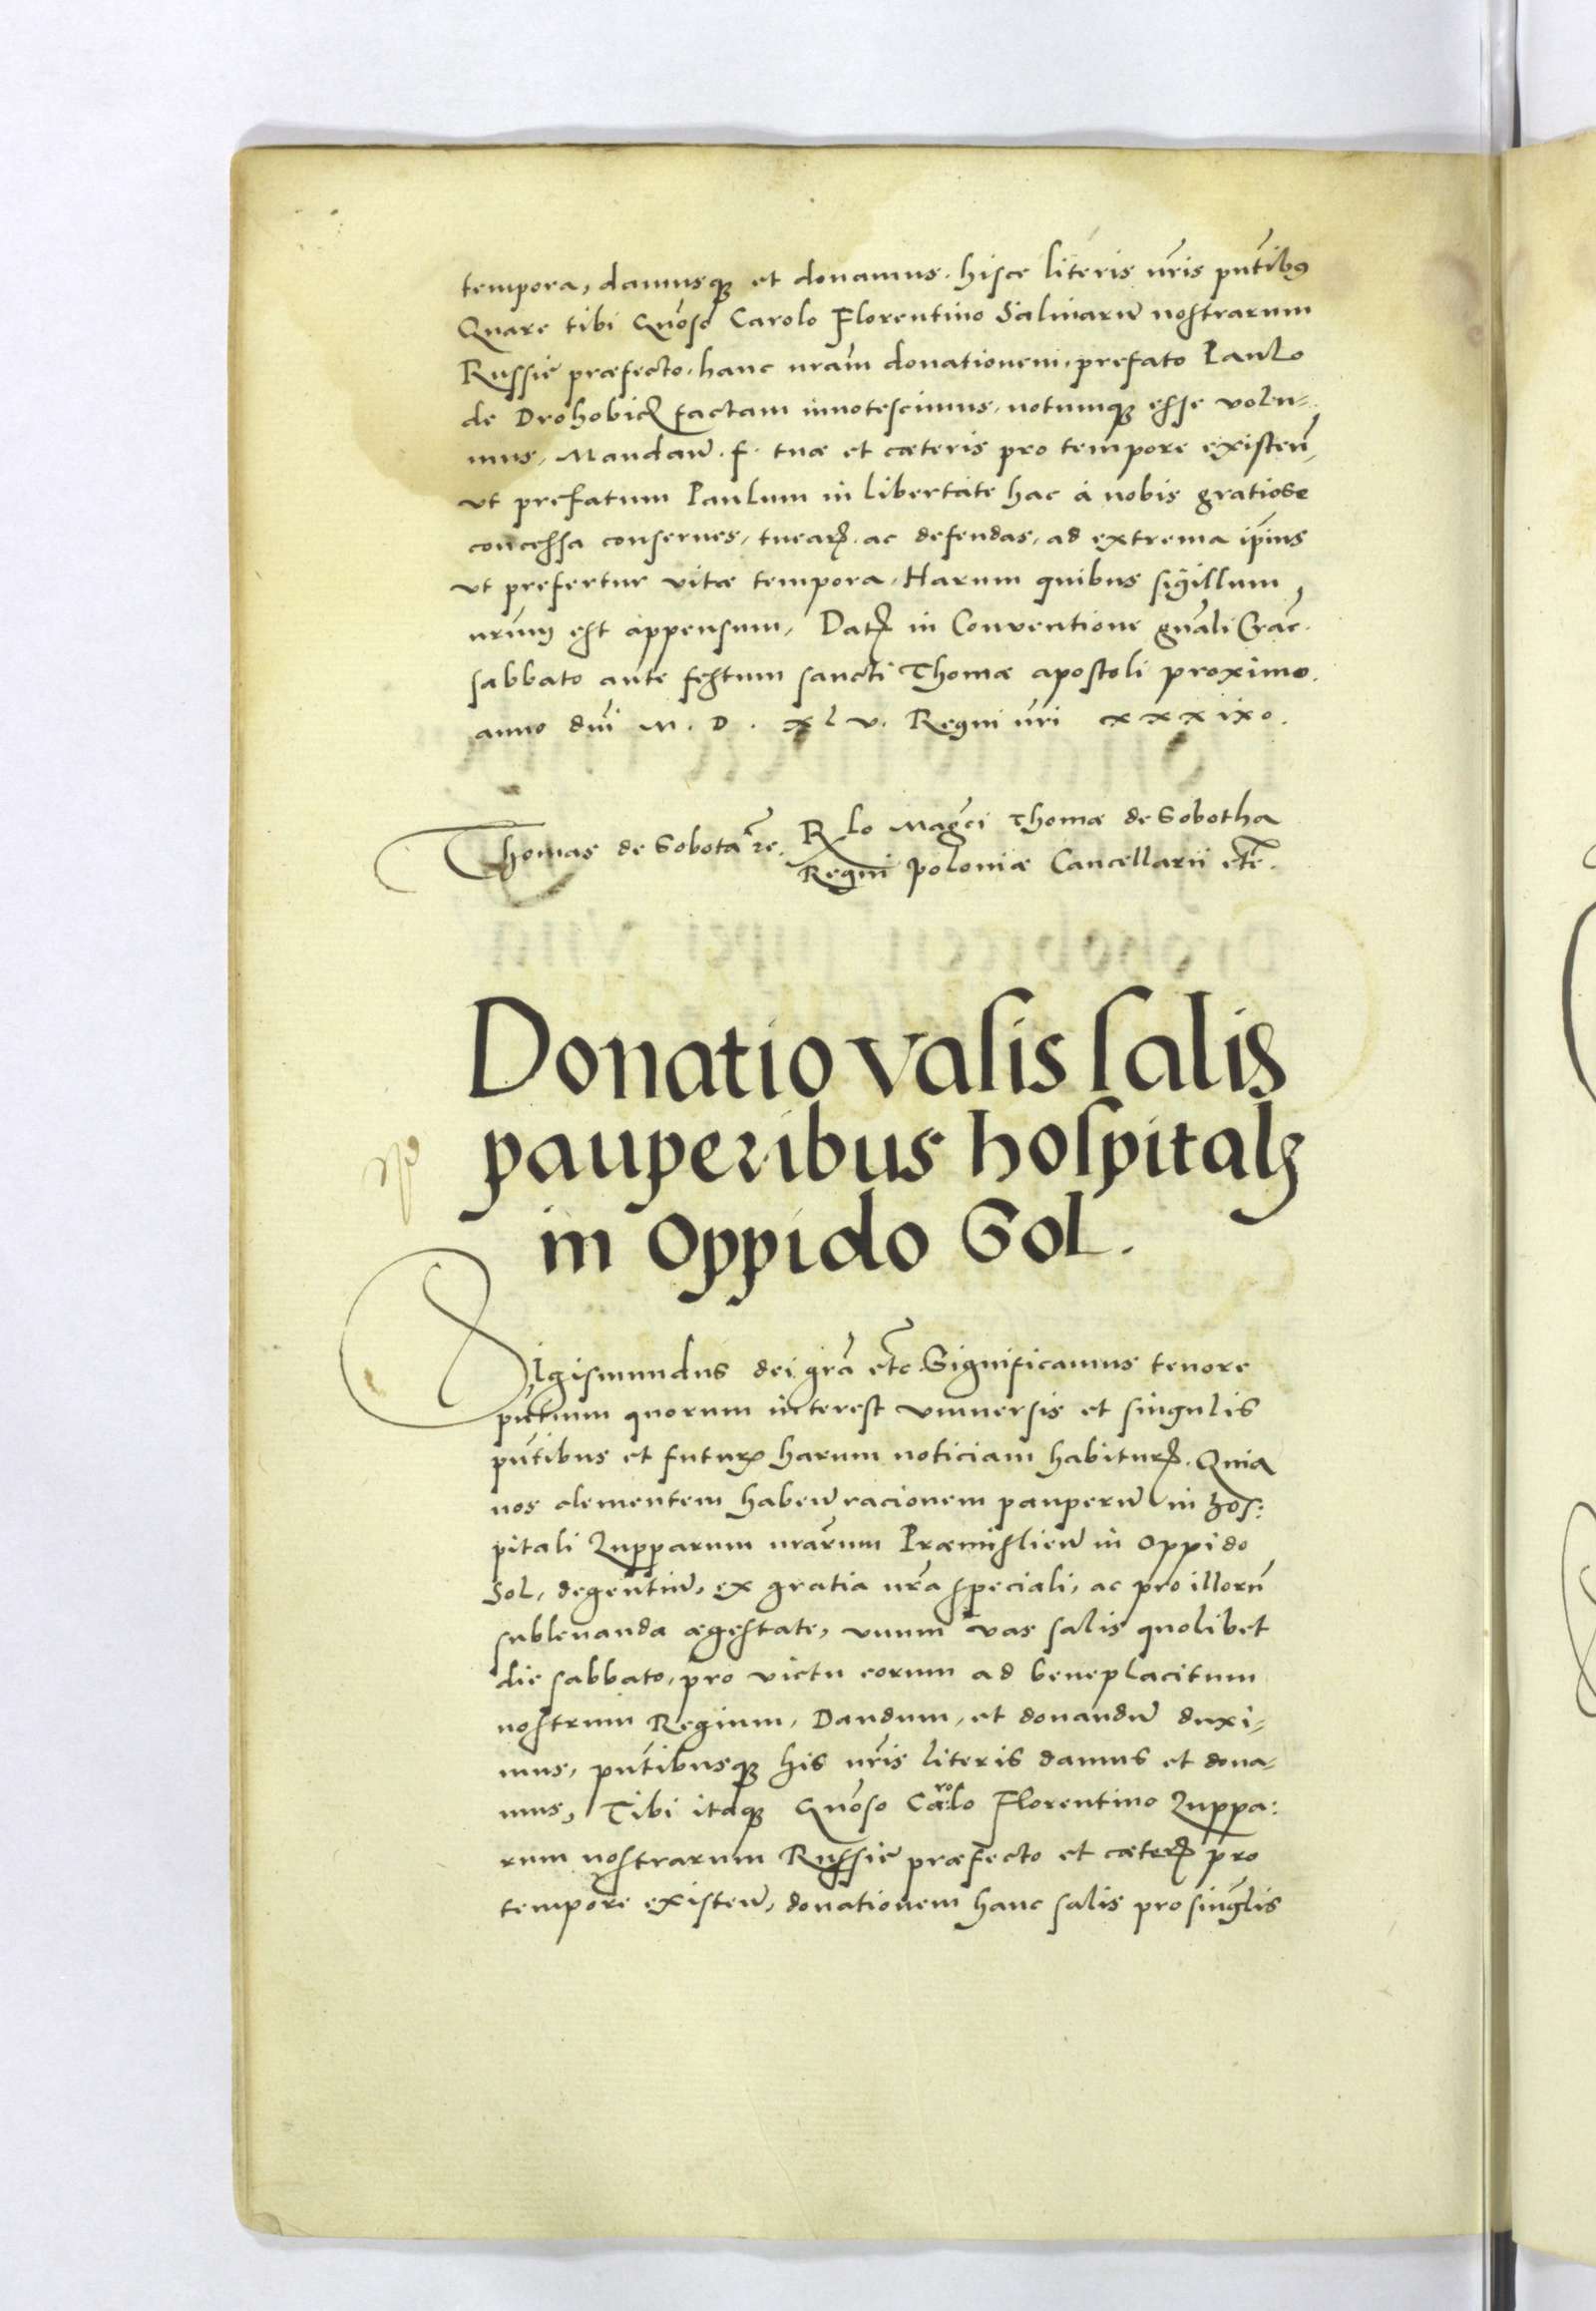 tempora, damusq₃ et donamus. hisce literis nr̃is pn̄tibus
Quare tibi Gn̄oso Carolo Florentino Salinarū nostrarum
Russie præfecto. hanc nr̃am donationem. prefato Paulo
de Drohobicz factam innotescimus, notumq₃ esse volu-
mus, Mandam̃. f. tuæ et cæteris pro tempore existeñ,
vt prefatum Paulum in libertate hac à nobis gratiose
concessa conserues, tuearis. ac defendas, ad extrema ip̃ius
vt prefertur vitæ tempora. Harum quibus sigillum
nr̃um est appensum, Datꝭ in Conventione gn̄ali Crac̃.
sabbato ante festum sancti Thomæ apostoli proximo.
anno dñi M. D. xlv. Regni nr̃i xxxixo.
Thomas de Sobota R̃ Cã. Rlo Mag̃ci Thomæ de Sobotha
Regni Poloniæ Cancellarii et̃c.
Donatio vasis salis
pauperibus hospitalꝭ
in Oppido Sol.
Sigismundus dei gr̃a et̃c Significamus tenore
pn̄tium quorum interest vniuersis et singulis
pn̄tibus et futurꝭ harum noticiam habiturꝭ. Quia
nos clementem habeñ racionem pauperū in hos:
pitali Zupparum nr̃arum Præmislieñ in Oppido
Sol, degentiū, ex gratia nr̃a speciali, ac pro illorū
subleuanda ægestate, vnum vas salis quolibet
die sabbato, pro victu eorum ad beneplacitum
nostrum Regium, Dandum, et donandū duxi-
mus, pn̄tibusq₃ his nr̃is literis damus et dona-
mus, Tibi itaq₃ Gn̄oso Carolo Florentino Zuppa:
rum nostrarum Russie præfecto et cæterꝭ pro
tempore existeñ, donationem hanc salis pro singlis